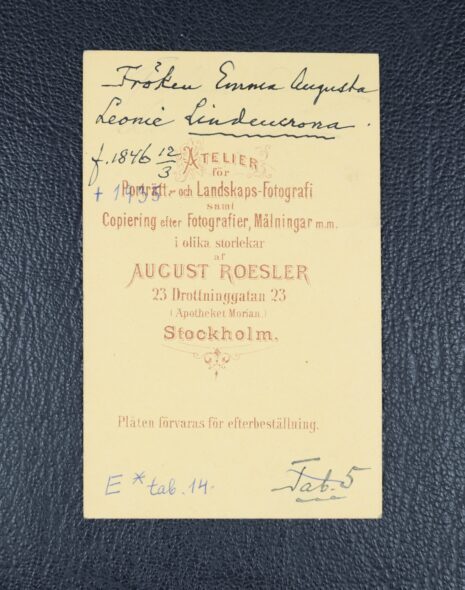 Fröken Emma Augusta
Leonie Lindencrona.
f. 1846 12/3
ATELIER
† 1935
för
Porträtt- och Landskaps-Fotografi
samt
Copiering efter Fotografier, Målningar m.m.
i olika storlekar
af
AUGUST ROESLER
23 Drottninggatan 23
(Apotheket Morian.)
Stockholm.
Plåten förvaras för efterbeställning.
E* tab. 14.
Tab. 5